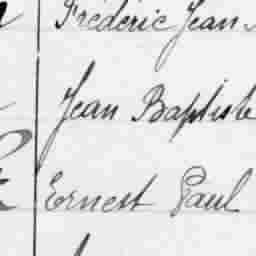 Frédéric Jean
Jean Baptiste
Ernest Paul